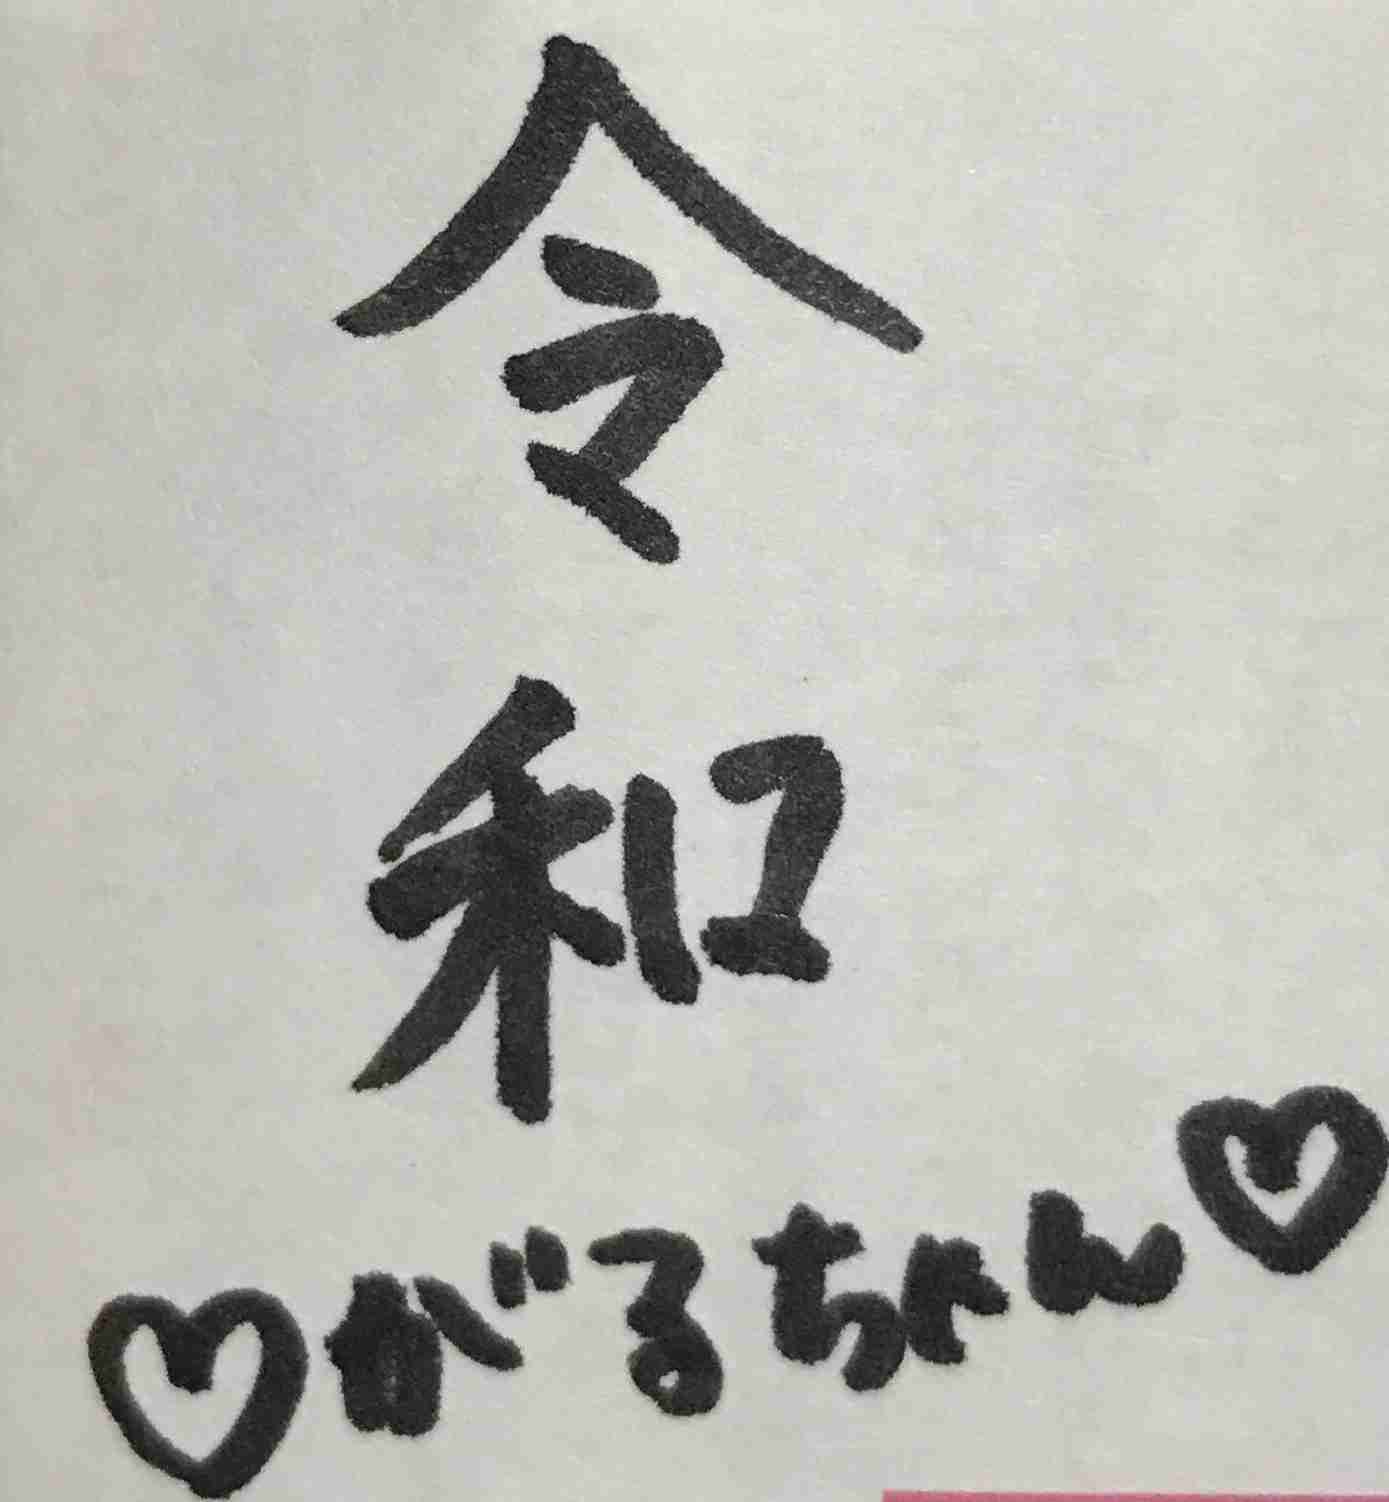 令和
♡がるちゃん♡